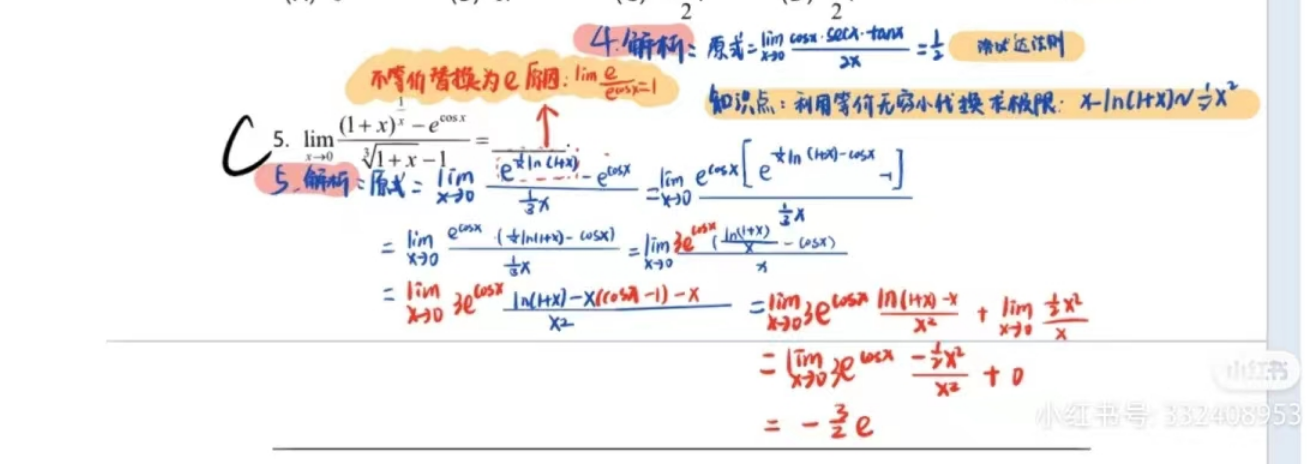 2 2
4.解析：原式=lim x→0 cosx·secx·tanx / 2x = 1/2 洛必达法则
不等价替换为e原因：lim e / e^cosx = 1
知识点：利用等价无穷小代换求极限：x-ln(1+x)~1/2 x²
C 5. lim x→0 ((1+x)^(1/x) - e^(cos x)) / (∛(1+x) - 1) =
5.解析：原式= lim x→0 (e^(1/x ln(1+x)) - e^cosx) / (1/3 x) = lim x→0 e^cosx [e^(1/x ln(1+x)-cosx) -1] / (1/3 x)
= lim x→0 e^cosx·(1/x ln(1+x)-cosx) / (1/3 x) = lim x→0 3e^cosx (ln(1+x)/x - cosx) / x
= lim x→0 3e^cosx (ln(1+x)-x(cosx-1)-x) / x² = lim x→0 3e^cosx (ln(1+x)-x) / x² + lim x→0 (1/2 x²) / x
= lim x→0 3e^cosx (-1/2 x²) / x² + 0
= -3/2 e
小红书
小红书号: 332408953